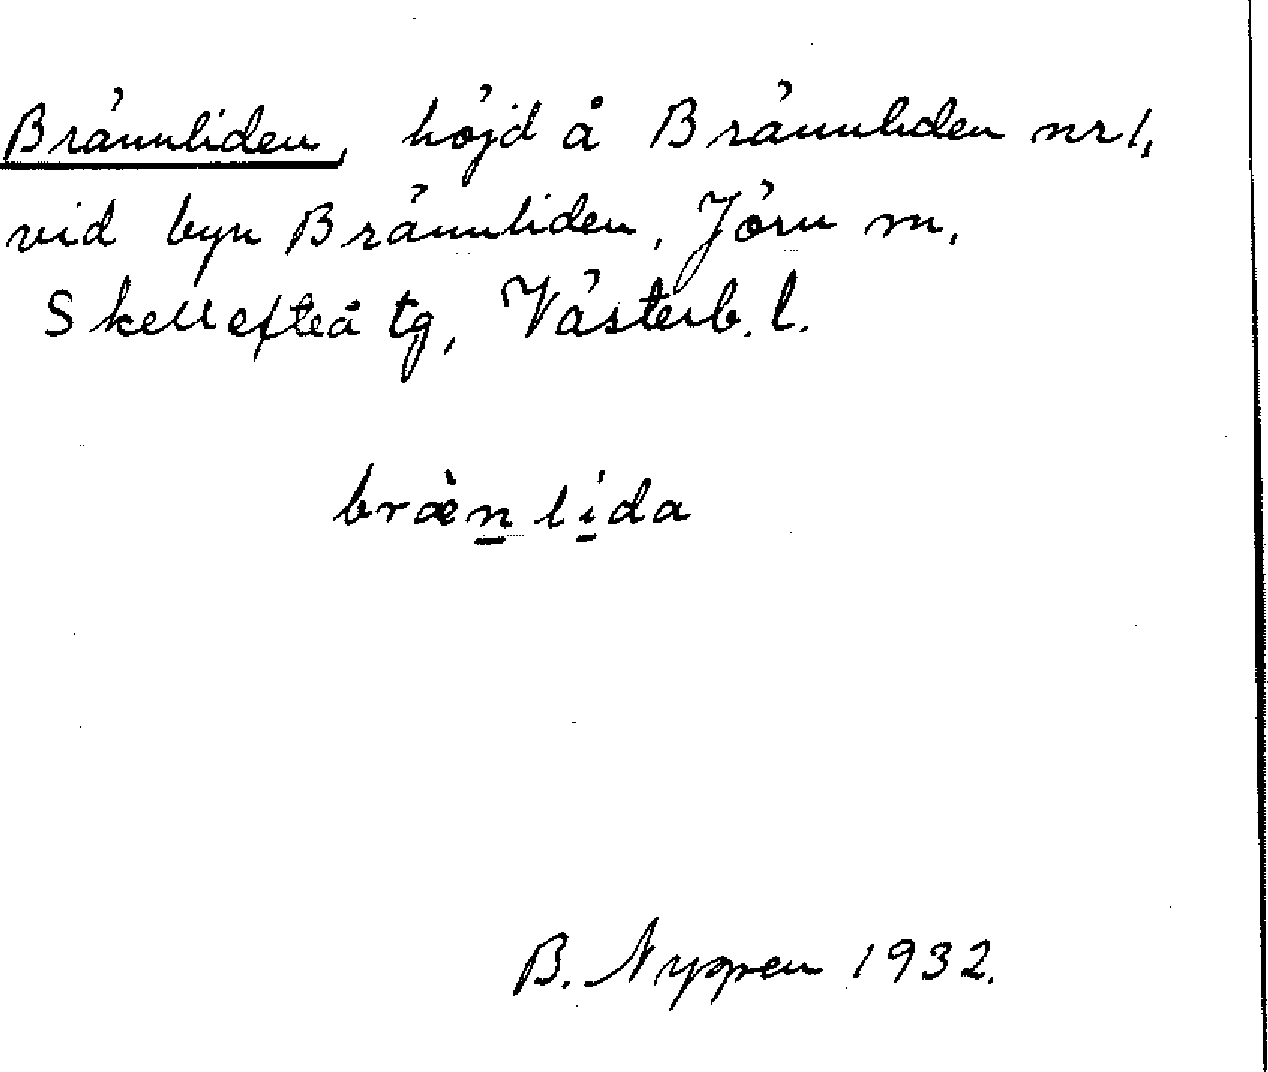 Brännliden, höjd å Brännliden nr 1,
vid byn Brännliden, Jörn m,
Skellefteå tg, Västerb. l.
bræ̀n̲lí̲da
B. Nyppen 1932.